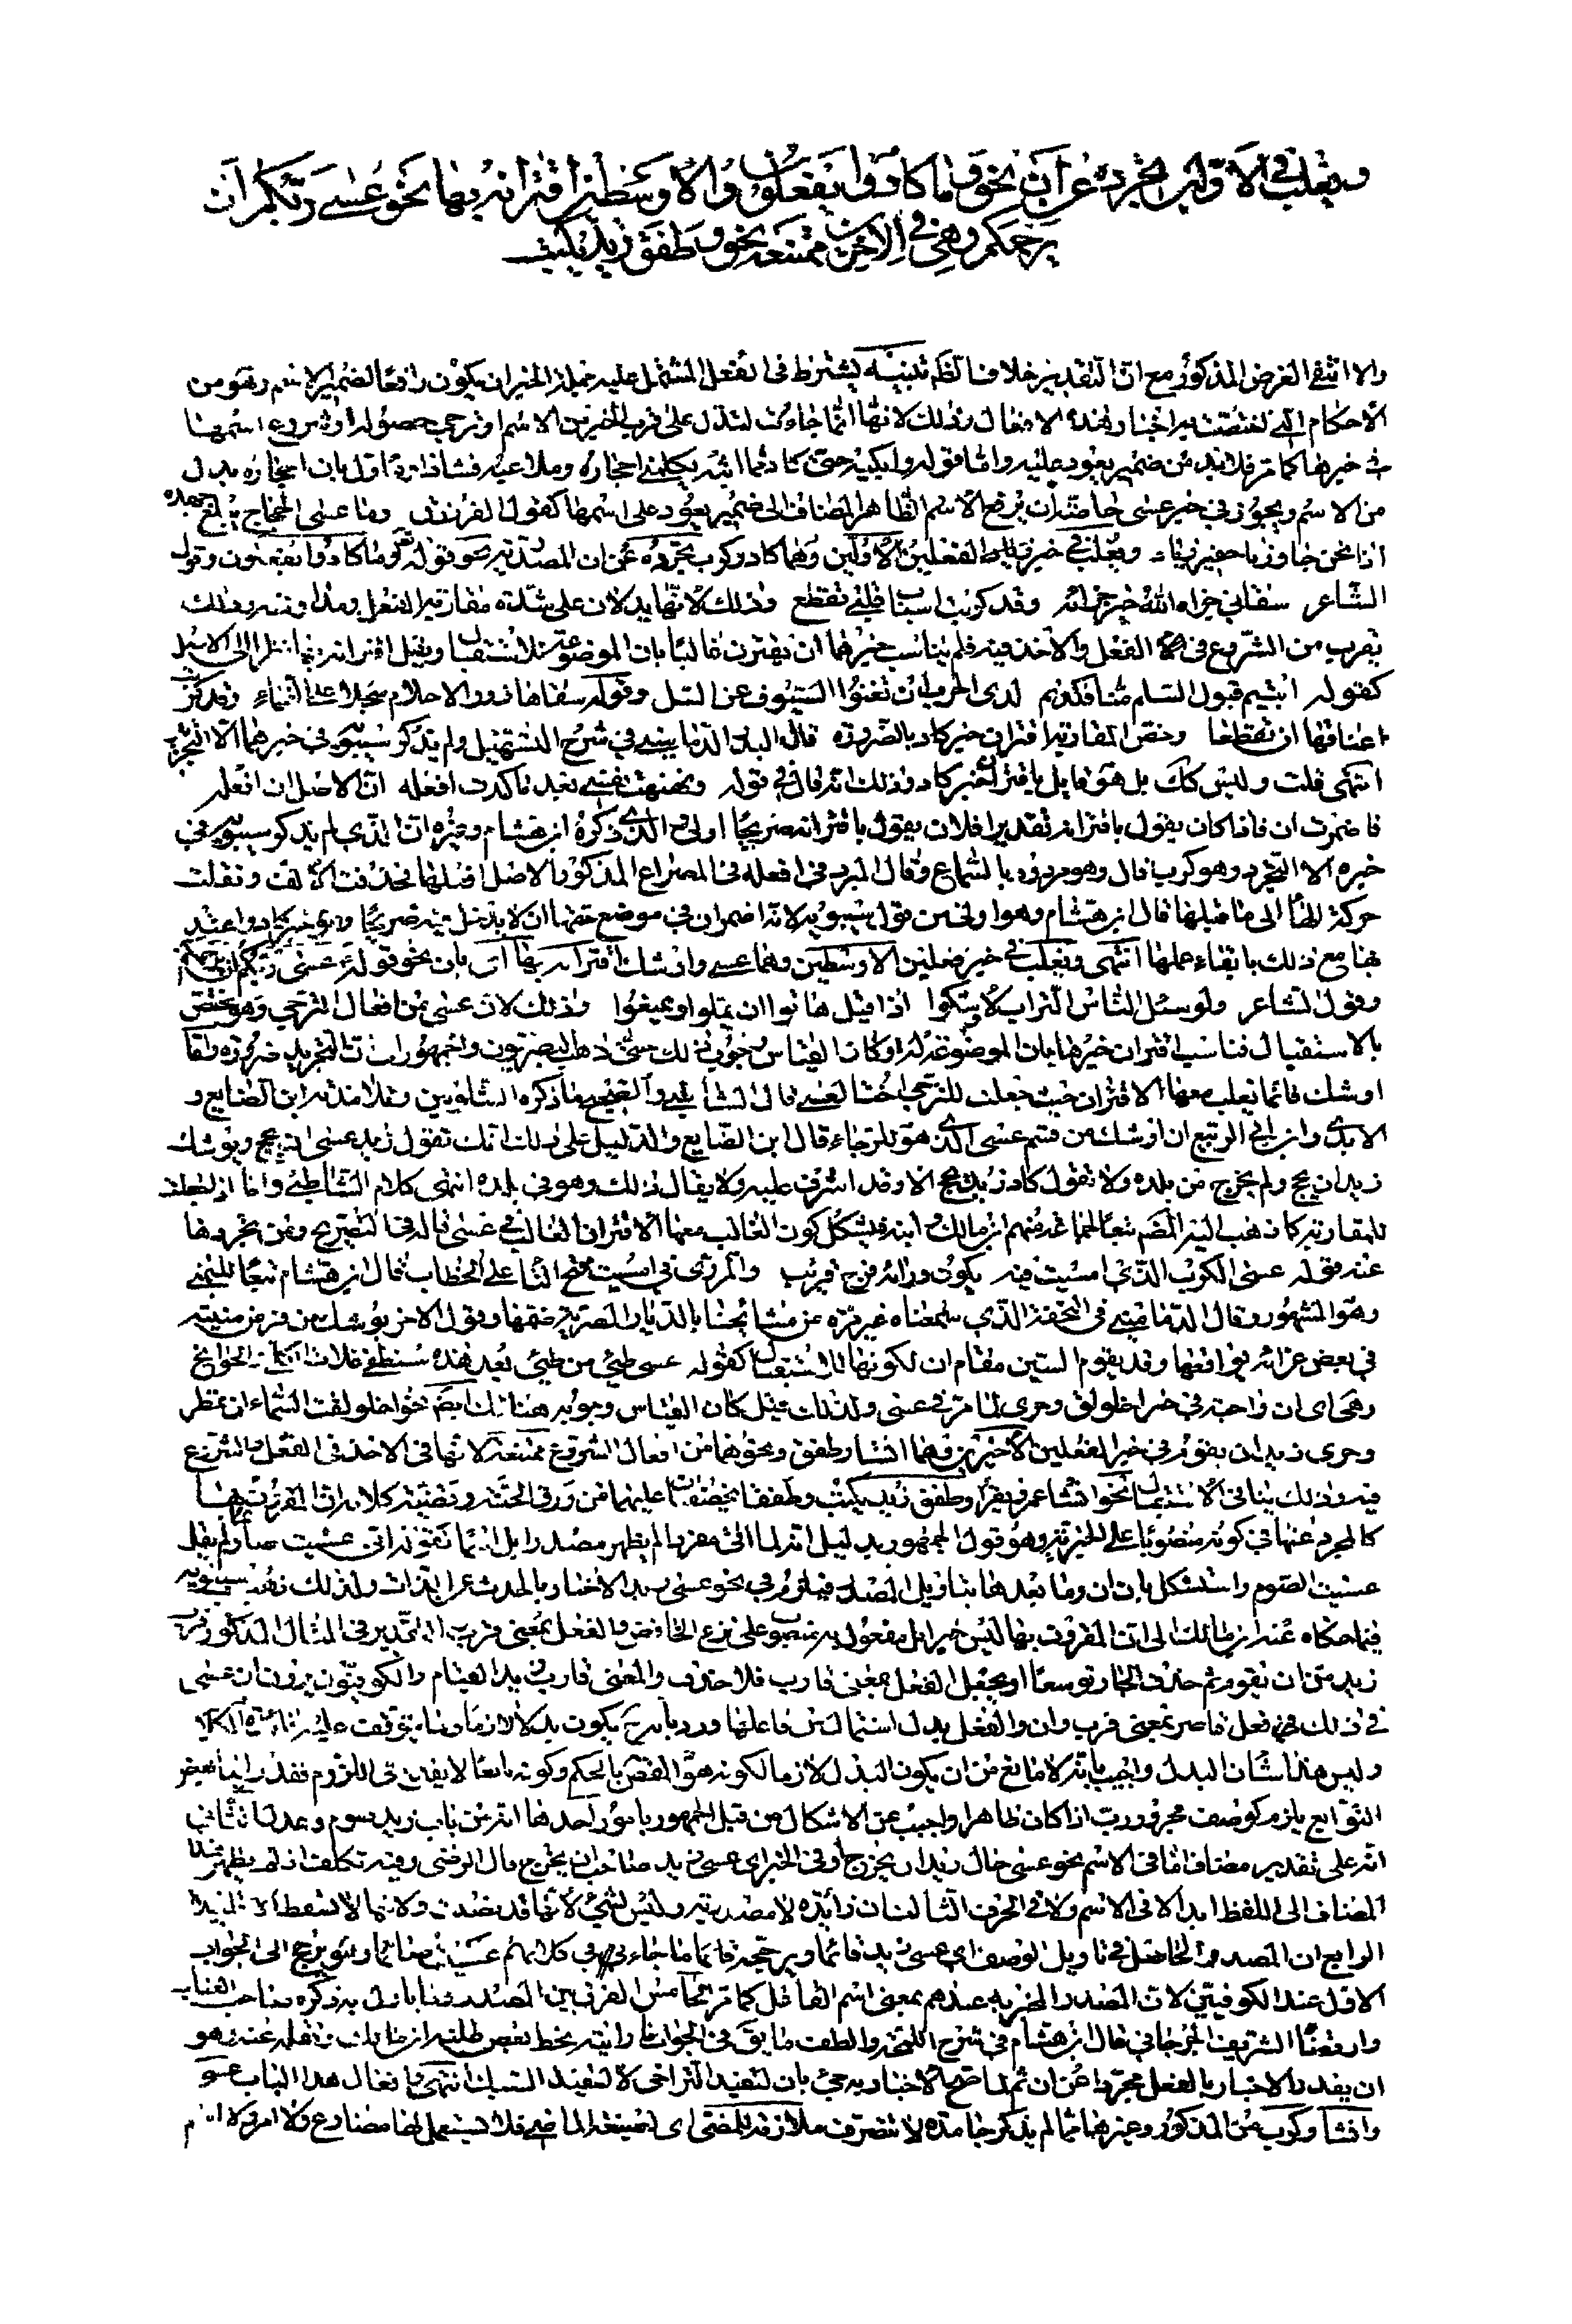 ويغلب في الاولين تجرده عن أن نحو وما كادوا يفعلون والاوسطين اقترانه بها نحو عسى ربكم ان
يرحمكم وهي في الاخيرين ممتنعة نحو وطفق زيد يكتب
والا انتفى الغرض المذكور مع ان التقدير خلاف الظم تنبيه يشترط في الفعل المشتمل عليه جملة الخبر ان يكون رافعا لضمير الاسم وهو من
الاحكام التي اختصت بها اخبار هذه الافعال وذلك لانها انما جاءت لتدل على قرب الخبر من الاسم او ترجي حصوله او شروع اسمها
في خبرها كما مر فلا بد من ضمير يعود عليه واما قوله وابكيه حتى كاد مما ابثه يكلمني احجاره وملاعبه فشاذ اول بان احجاره بدل
من الاسم ويجوز في خبر عسى خاصة ان يرفع الاسم الظاهر المضاف الى ضمير يعود على اسمها كقول الفرزدق وما عسى الحجاج يبلغ جهده
اذا نحن جاوزنا حفير زياد ويغلب في خبر الفعلين الاولين وهما كاد وكرب تجرده عن ان المصدرية نحو قوله وما كادوا يفعلون وقول
الشاعر سقاني جزاه الله خير جزائه وقد كربت اسباب قلبي تقطع وذلك لانهما يدلان على شدة مقاربة الفعل ومداومته وذلك
يقرب من الشروع في الفعل والاخذ فيه فلم يناسب خبرهما ان يقترن غالبا بان الموضوعة للاستقبال ويقل اقترانه بها نظرا الى الاصل
كقوله ابيتم قبول السلم منا فكدتم لدى الحرب ان تغنوا السيوف عن السل وقوله سقاها ذوو الاحلام سجلا على الظماء وقد كربت
اعناقها ان تقطعا وخص المغاربة اقتران خبر كاد بالضرورة قال البدر الدماميني في شرح التسهيل ولم يذكر سيبويه في خبرهما الا التجرد
انتهى قلت وليس كك بل هو قايل باقتران خبر كاد وذلك انه قال في قوله ونهنهت نفسي بعد ما كدت افعله ان الاصل ان افعله
فاضمرت ان فاذا كان يقول باقترانه تقديرا فلان يقول باقترانه صريحا اولى والذي ذكره ابن هشام وغيره ان الذي لم يذكر سيبويه في
خبره الا التجرد وهو كرب قال وهو مردود بالسماع وقال المبرد في افعله في المصراع المذكور الاصل افعلها فحذفت الالف ونقلت
حركة الهاء الى ما قبلها قال ابن هشام وهو اولى من قول سيبويه لانه اضمر ان في موضع حقها ان لا يدخل فيه صريحا وهو خبر كاد واعتد
بها مع ذلك بابقاء عملها انتهى ويغلب في خبر فعلين الاوسطين وهما عسى واوشك اقترانه بها اي بان نحو قوله عسى ربكم ان يرحمكم
وقول الشاعر ولو سئل الناس التراب لاوشكوا اذا قيل هاتوا ان يملوا ويمنعوا وذلك لان عسى من افعال الترجي وهو يختص
بالاستقبال فناسب اقتران خبرها بان الموضوعة له وكان القياس وجوب ذلك حتى ذهب البصريون والجمهور ان التجريد ضرورة واما
اوشك فانما يغلب معها الاقتران حيث جعلت للترجي اختا لعسى قال الشاطبي والصحيح ما ذكره الشلوبين وتلامذته ابن الضايع و
الابدي وابن ابي الربيع ان اوشك من قسم عسى الذي هو للرجاء قال ابن الضايع والدليل على ذلك انك تقول زيد عسى ان يحج ويوشك
زيد ان يحج ولم يخرج من بلده ولا تقول كاد زيد يحج الا وقد اشرف عليه ولا يقال ذلك وهو في بلده انتهى كلام الشاطبي واما ان جعلت
للمقاربة كما ذهب اليه المصنف تبعا لجماعة منهم ابن مالك وابنه فيشكل كون الغالب معها الاقتران الغالب في عسى قاله في التصريح ومن تجردها
عنه قوله عسى الكرب الذي امسيت فيه يكون وراءه فرج قريب والمروي في امسيت فتح التاء على الخطاب قال ابن هشام تبعا لليمني
وهو المشهور وقال الدماميني في التحفة الذي سمعناه غير مرة عن مشائخنا بالديار المصرية ضمها وقول الاخر يوشك من فر من منيته
في بعض غراته يوافقها وقد يقوم السين مقام ان لكونها للاستقبال كقوله عسى طيئ من طيئ بعد هذه ستطفئ غلات الكلى والجوانح
وهي اي ان واجبة في خبر اخلولق وحرى لما مر في عسى ولذلك قيل كان القياس وجوبه هناك ايضم نحو اخلولقت السماء ان تمطر
وحرى زيد ان يقوم وفي خبر الفعلين الاخيرين وهما انشأ وطفق ونحوهما من افعال الشروع ممتنعة لانها في الاخذ في الفعل والشروع
فيه وذلك ينافي الاستقبال نحو انشأ عمرو يقرأ وطفق زيد يكتب وطفقا يخصفان عليهما من ورق الجنة وقضية كلامه ان المقرون بها
كالمجرد عنها في كونه منصوبا على الخبرية وهو قول الجمهور بدليل انه لما اتى مفردا لم يظهر مصدرا بل اسما كقوله اني عسيت صائما ولم يقل
عسيت الصوم واستشكل بان ان وما بعدها بتاويل المصدر فيلزم في نحو عسى زيد الاخبار بالحدث عن الذات ولذلك ذهب سيبويه
فيما حكاه عنه ابن مالك الى ان المقرون بها ليس خبرا بل مفعول به منصوب على نزع الخافض والفعل بمعنى قرب اذ التقدير في المثال المذكور قرب
زيد من ان يقوم ثم حذف الجار توسعا او بجعل الفعل بمعنى قارب فلا حذف والمعنى قارب زيد القيام والكوفيون يرون ان عسى
في ذلك فعل قاصر بمعنى قرب وان والفعل بدل اشتمال من فاعلها ورد بانه ح يكون بدلا لازما
وليس هذا شان البدل واجيب بانه لا مانع من ان يكون البدل لازما لكونه هو المقصود بالحكم وكونه تابعا لا يقدح في اللزوم فقد راينا بعض
التوابع يلزم كوصف مجرور رب اذا كان ظاهرا واجيب عن الاشكال من قبل الجمهور بامور احدها انه من باب زيد صوم وعدل ثانيها
انه على تقدير مضاف اما في الاسم نحو عسى حال زيد ان يخرج او في الخبر اي عسى زيد صاحب ان يخرج قال الرضي وفيه تكلف اذ لم يظهر هذا
المضاف الى اللفظ ابدا لا في الاسم ولا في الخبر الثالث ان زائدة لا مصدرية وليس بشيئ لانها قد نصبت ولانها لا تسقط الا قليلا
الرابع ان المصدر الحاصل في تاويل الوصف اي عسى زيد قائما ويرجحه ما جاء في كلامهم عسيت صائما
الاول عند الكوفيين لان المصدر المخبر به عندهم بمعنى اسم الفاعل كما مر الخامس الفرق بين المصدر
وارتضاه الشريف الجرجاني قال ابن هشام في شرح اللمحة والطف ما يق في الجواب ما رايته بخط بعض طلبة ابن مالك نقله عنه وهو
ان يقدر الاخبار بالفعل مجردا عن ان ثم لما صح الاخبار به جئ بان لتفيد التراخي لا لتفيد السبك انتهى وافعال هذا الباب عسى
وانشأ وكرب من المذكور وغيرها مما لم يذكر جامدة لا تتصرف ملازمة للمضي اي لصيغة الماضي فلا يستعمل لها مضارع ولا امر ولا اسم